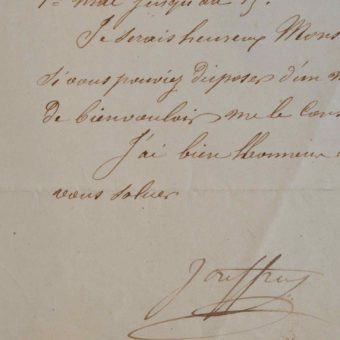 1er mai jusqu'au 15.
Je serais heureux Mons
si vous pouviez disposer d'un
de bien vouloir me le
J'ai bien l'honneur
vous saluer
Jouffroy